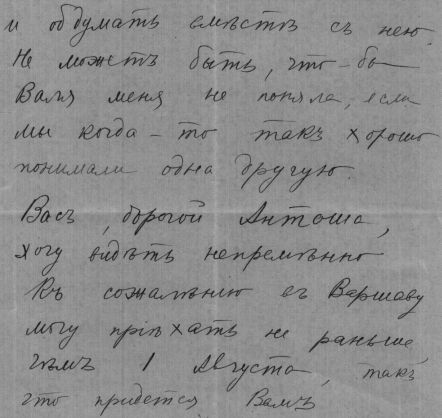 и обдумать вмѣстѣ съ нею.
Не можетъ быть, что-бы
Валя меня не поняла, если
мы когда-то такъ хорошо
понимали одна другую.
Васъ, дорогой Антоша,
хочу видѣть непремѣнно
Къ сожалѣнію въ Варшаву
могу пріѣхать не раньше,
чѣмъ 1 Августа, такъ
что придется Вамъ